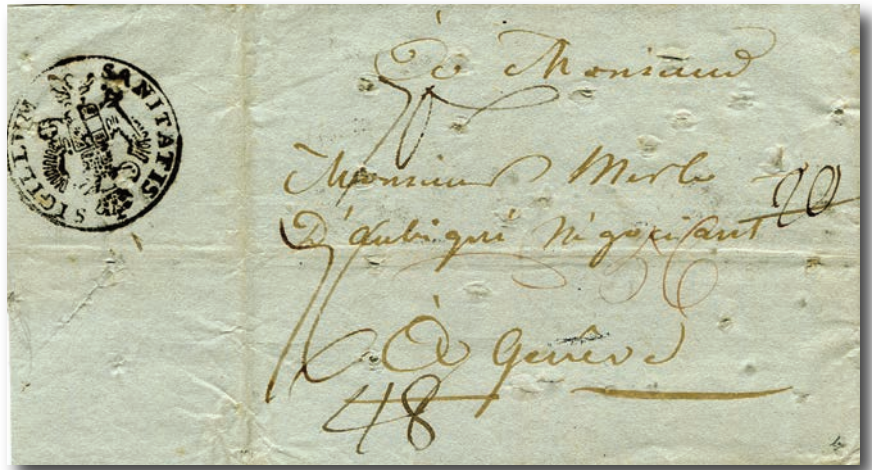 SIGILLUM SANITATIS
À Monsieur
Monsieur Merle
20
D'aubigné Négociant
À Genève
48